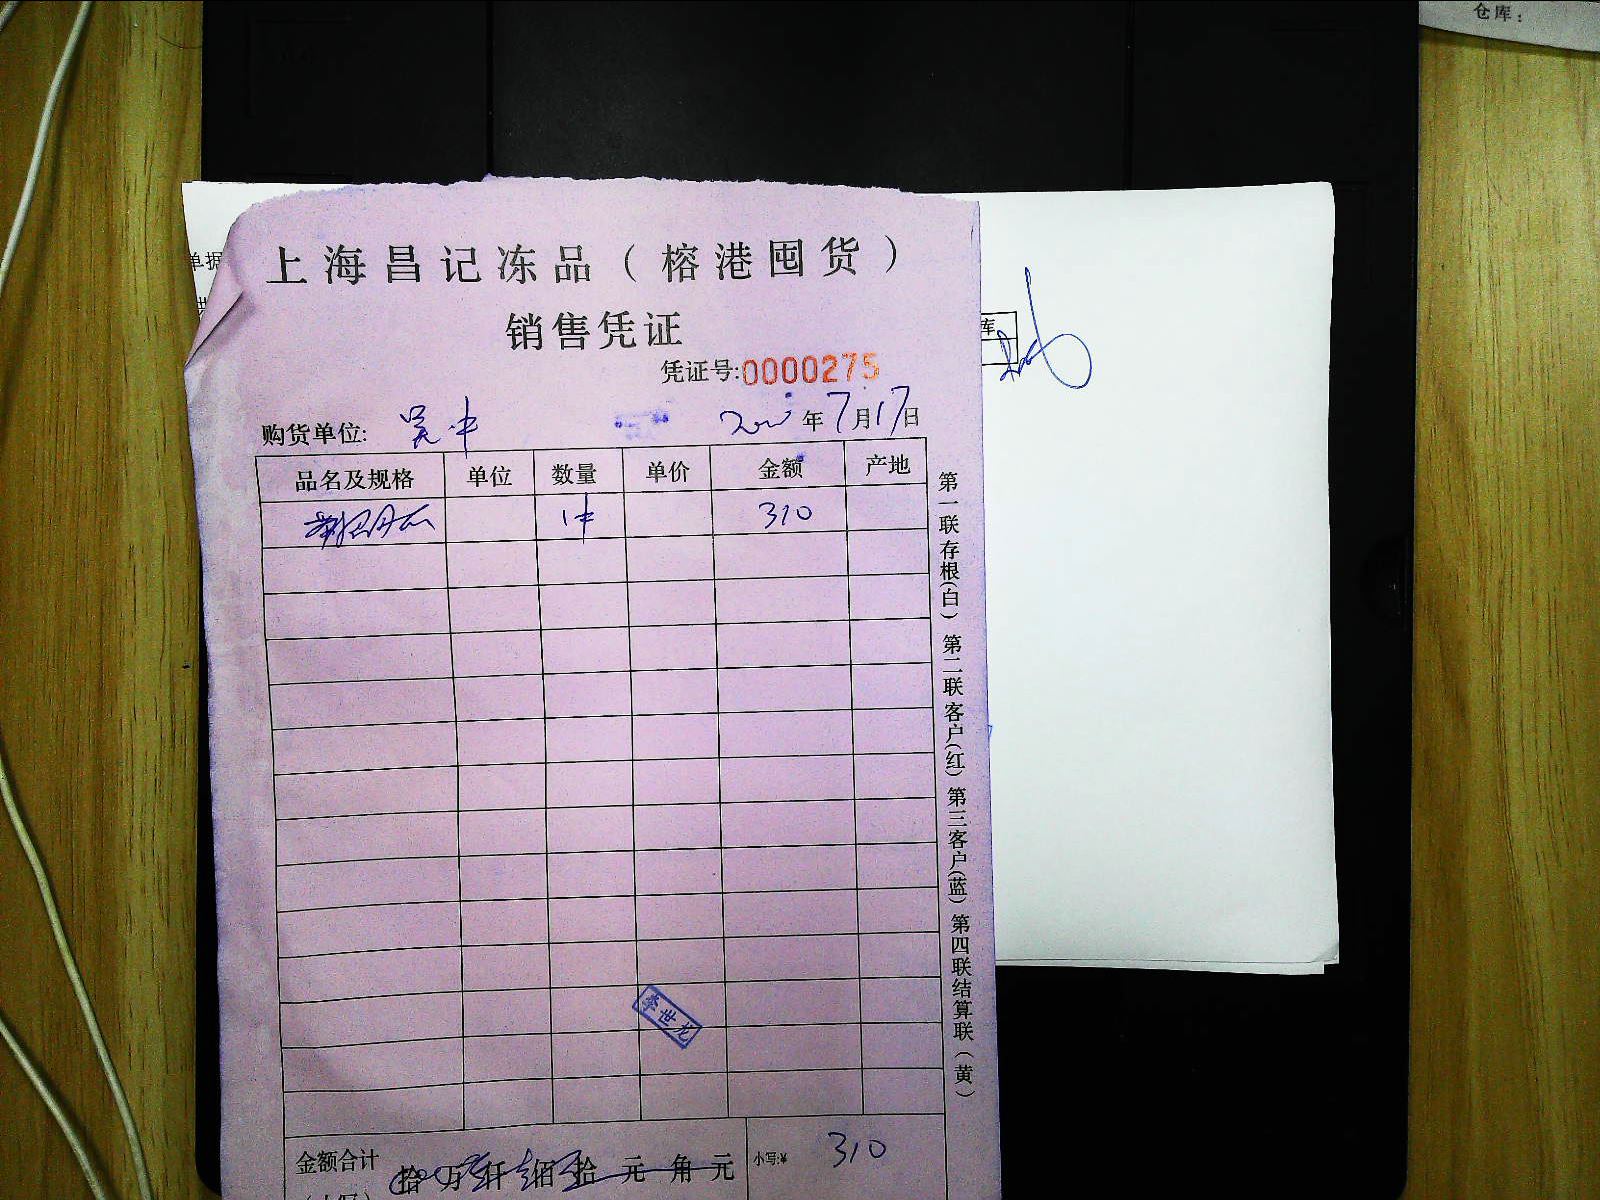 仓库:
单据
上海昌记冻品(榕港囤货)
销售凭证
凭证号:0000275
库
购货单位: 吴中 年7月17日
品名及规格 单位 数量 单价 金额 产地
1件 310
第一联存根(白) 第二联客户(红) 第三客户(蓝) 第四联结算联(黄)
李世龙
金额合计 拾 万 仟 佰 拾 元 角 元 小写:¥ 310